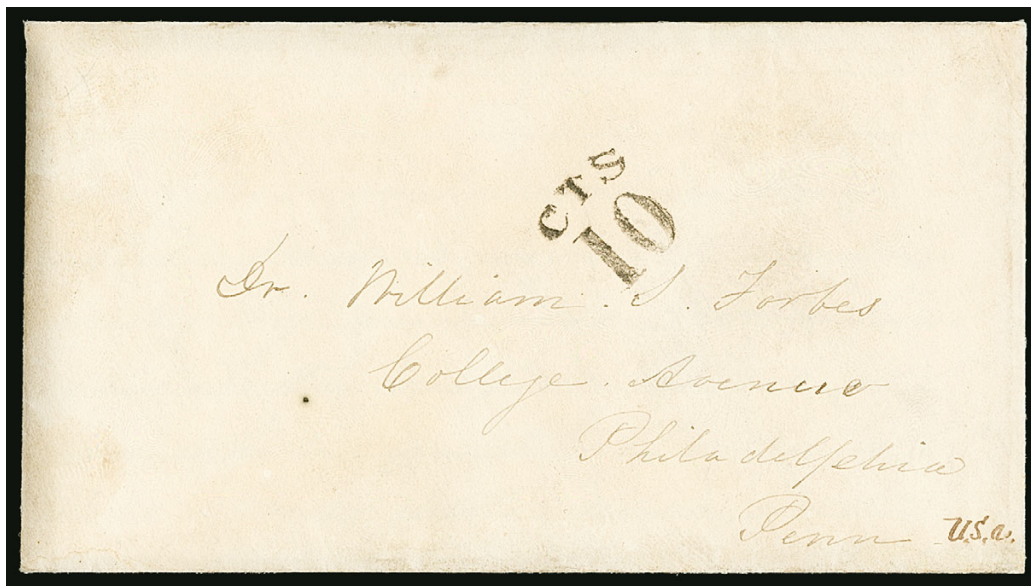 CTS
10
Dr. William. S. Forbes
College. Avenue
Philadelphia
Penn U.S.a.